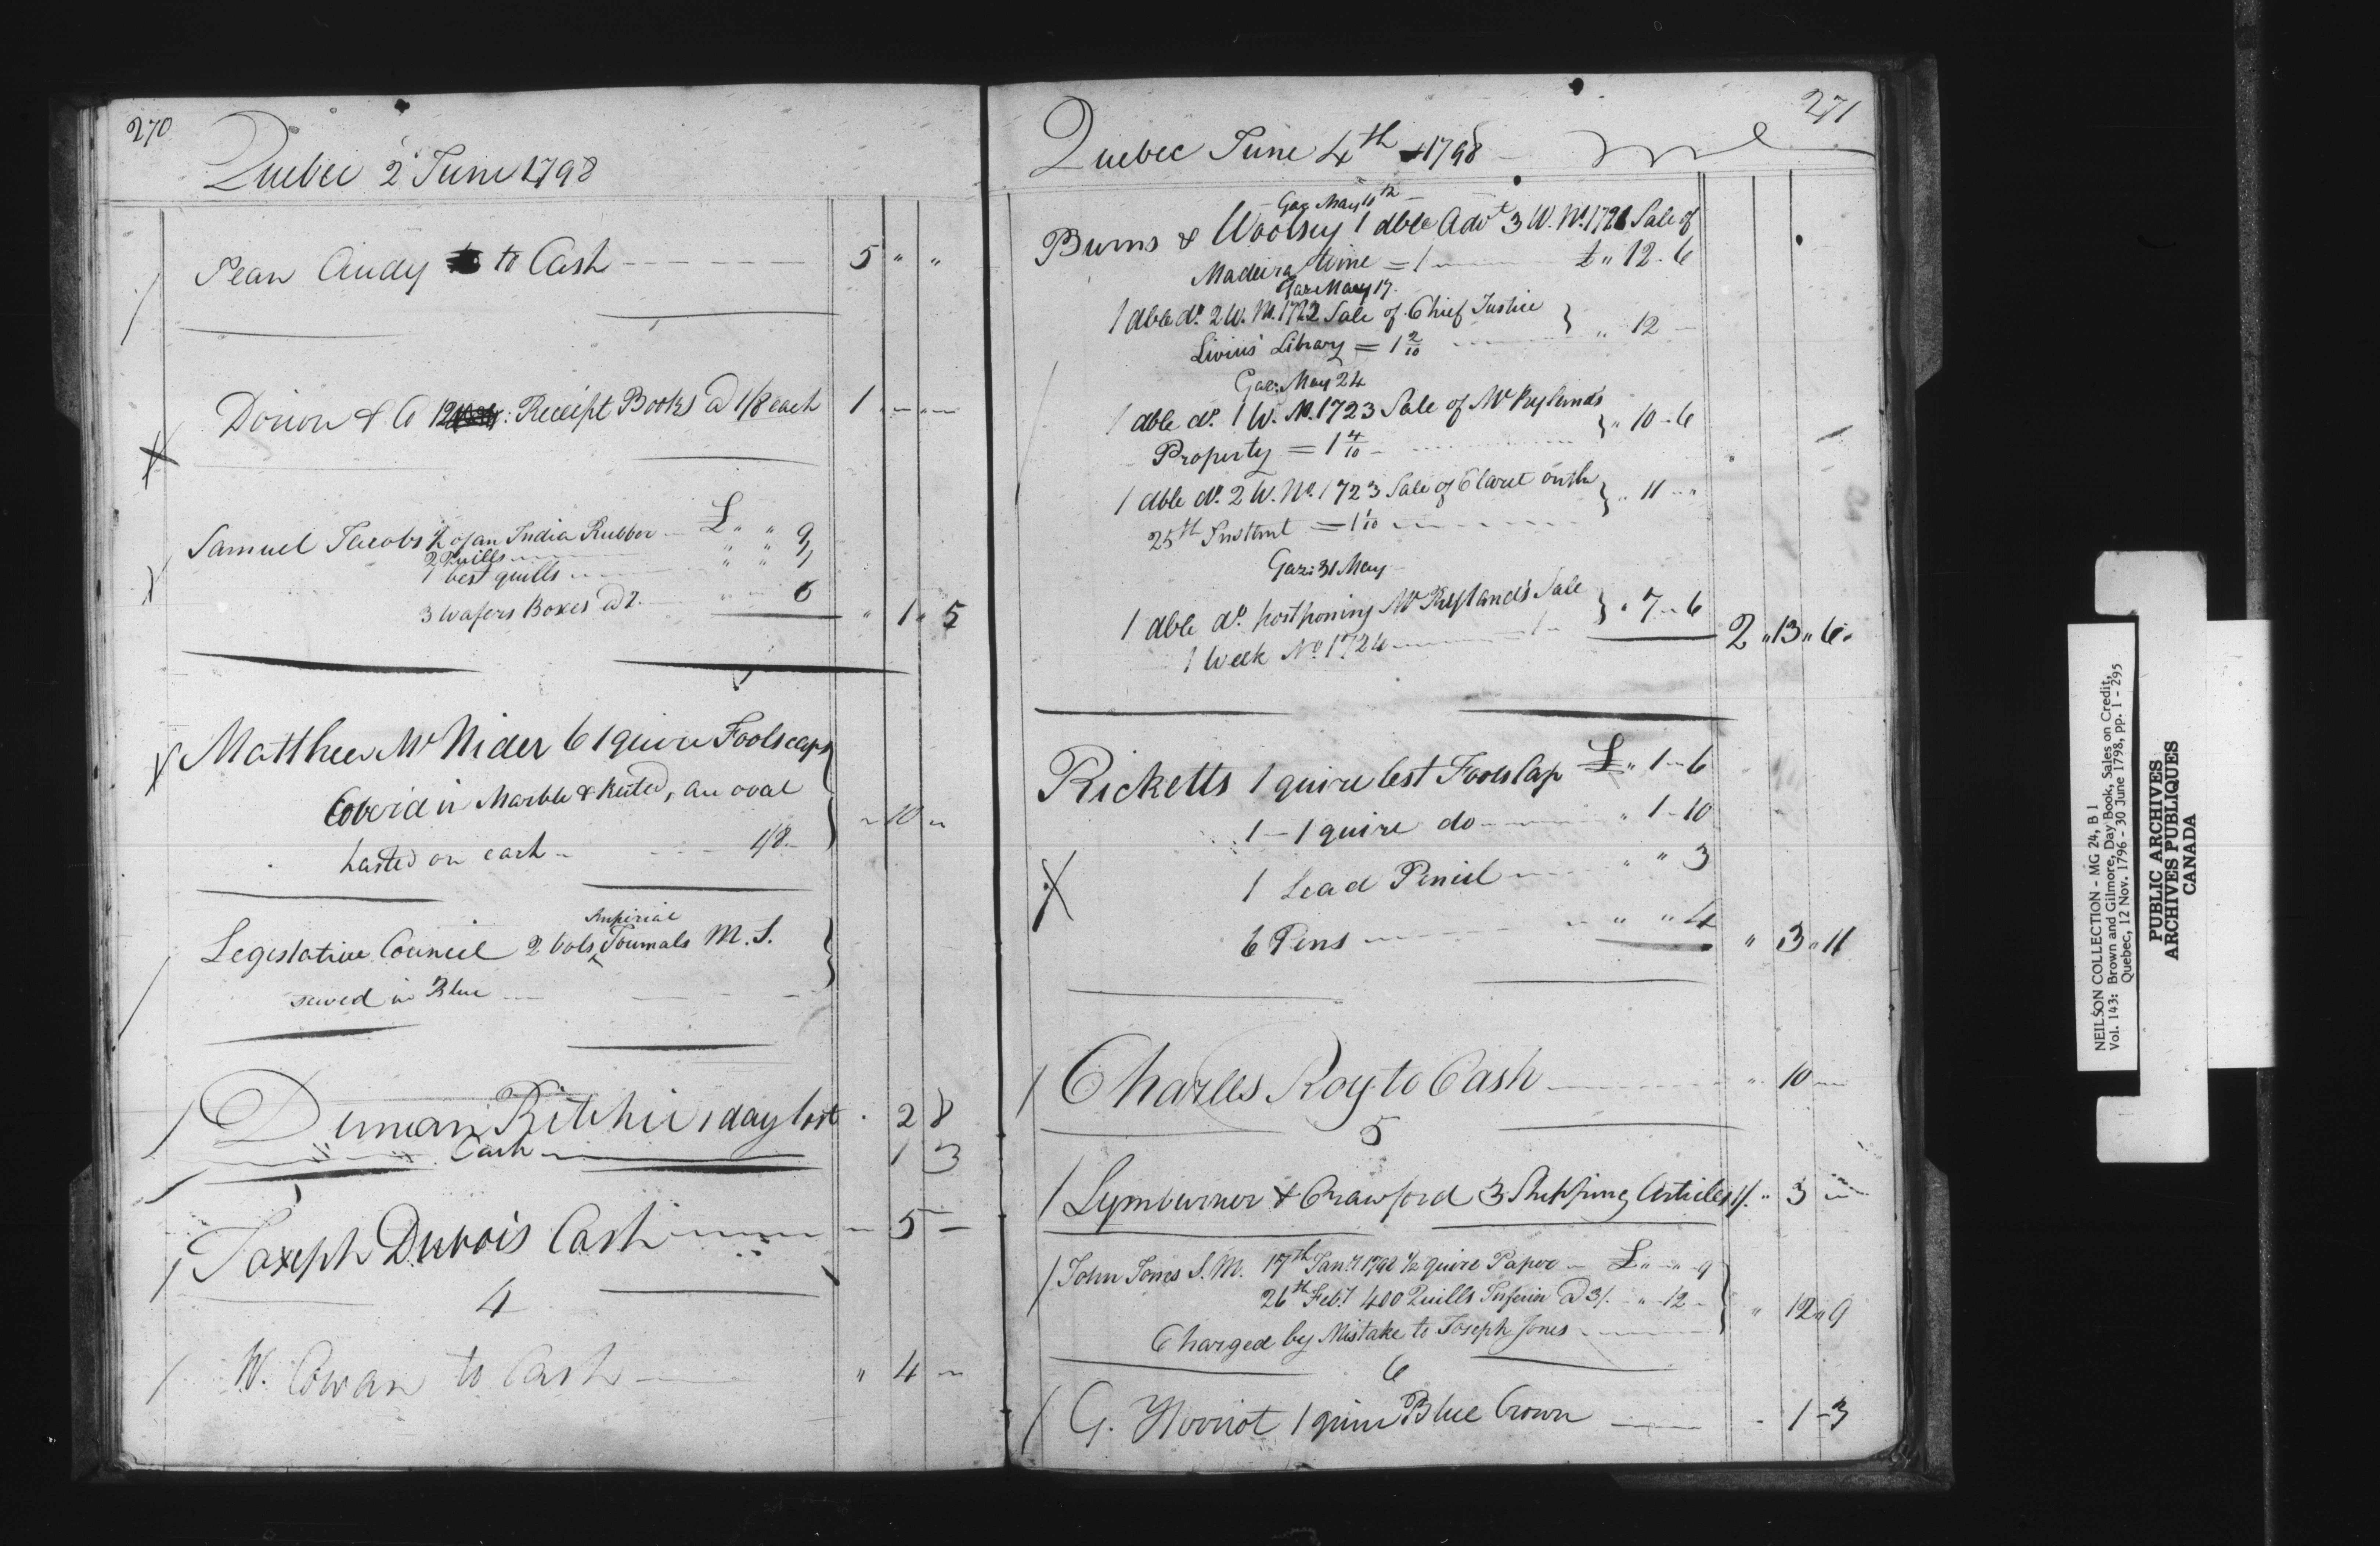 270
Quebec 2 June 1798
Jean Audy to Cash 5 " "
Dorion & Co 12 Receipt Books @ 1/8 each 1 " "
Samuel Jacobs ½ of an India Rubber £ " " 9
2 Quills " " 1
1 best quills " " 1
3 Wafers Boxes @ 2. " " 6
" 1 " 5
Matthew McNider 6 1 quire Foolscaps
Coverd in Marble & Ruled, an oval
pasted on each 1/8 " 10 "
Legislative Council 2 Vols Imperial Journals M.S.
sewed in Blue
Duncan Ritchie 1 day lost " 2 8
Cash 1 3
Joseph Dubois Cash " 5 "
4
W. Cowan to Cash " 4 "
271
Quebec June 4th 1798
Gaz May 10th
Burns & Woolsey 1 dble Advt 3 W. No. 1721 Sale of
Madeira Wine = 1 £ " 12 - 6
Gaz May 17.
1 dble do. 2 W. No. 1722 Sale of Chief Justice
Livius' Library = 1 2/10 " 12 -
Gaz: May 24
1 dble do. 1 W. No. 1723 Sale of Mr Rylands
Property = 1 4/10 " 10 - 6
1 dble do. 2 W. No. 1723 Sale of Claret on the
25th Instant = 1 1/10 " 11 "
Gaz: 31 May
1 dble do. postponing Mr Ryland's Sale
1 Week No. 1724 " 7 - 6
2 " 13 " 6
Ricketts 1 quire best Foolscap £ " 1 - 6
1 - 1 quire do " 1 - 10
1 Lead Pencil " " 3
6 Pens " " 4
" 3 " 11
Charles Roy to Cash " 10 "
5
Lymburner & Crawford 3 Shipping Articles 1/. " 3 "
John Jones S.M. 17th Jany 1798 ½ quire Paper £ " " 9
26th Feby 400 Quills Inferior @ 3/. " 12 -
Charged by Mistake to Joseph Jones " 12 " 9
6
G. Herriot 1 quire Blue Crown - 1 - 3
NEILSON COLLECTION - MG 24, B 1
Vol. 143: Brown and Gilmore, Day Book, Sales on Credit,
Quebec, 12 Nov. 1796 - 30 June 1798, pp. 1 - 295
PUBLIC ARCHIVES
ARCHIVES PUBLIQUES
CANADA